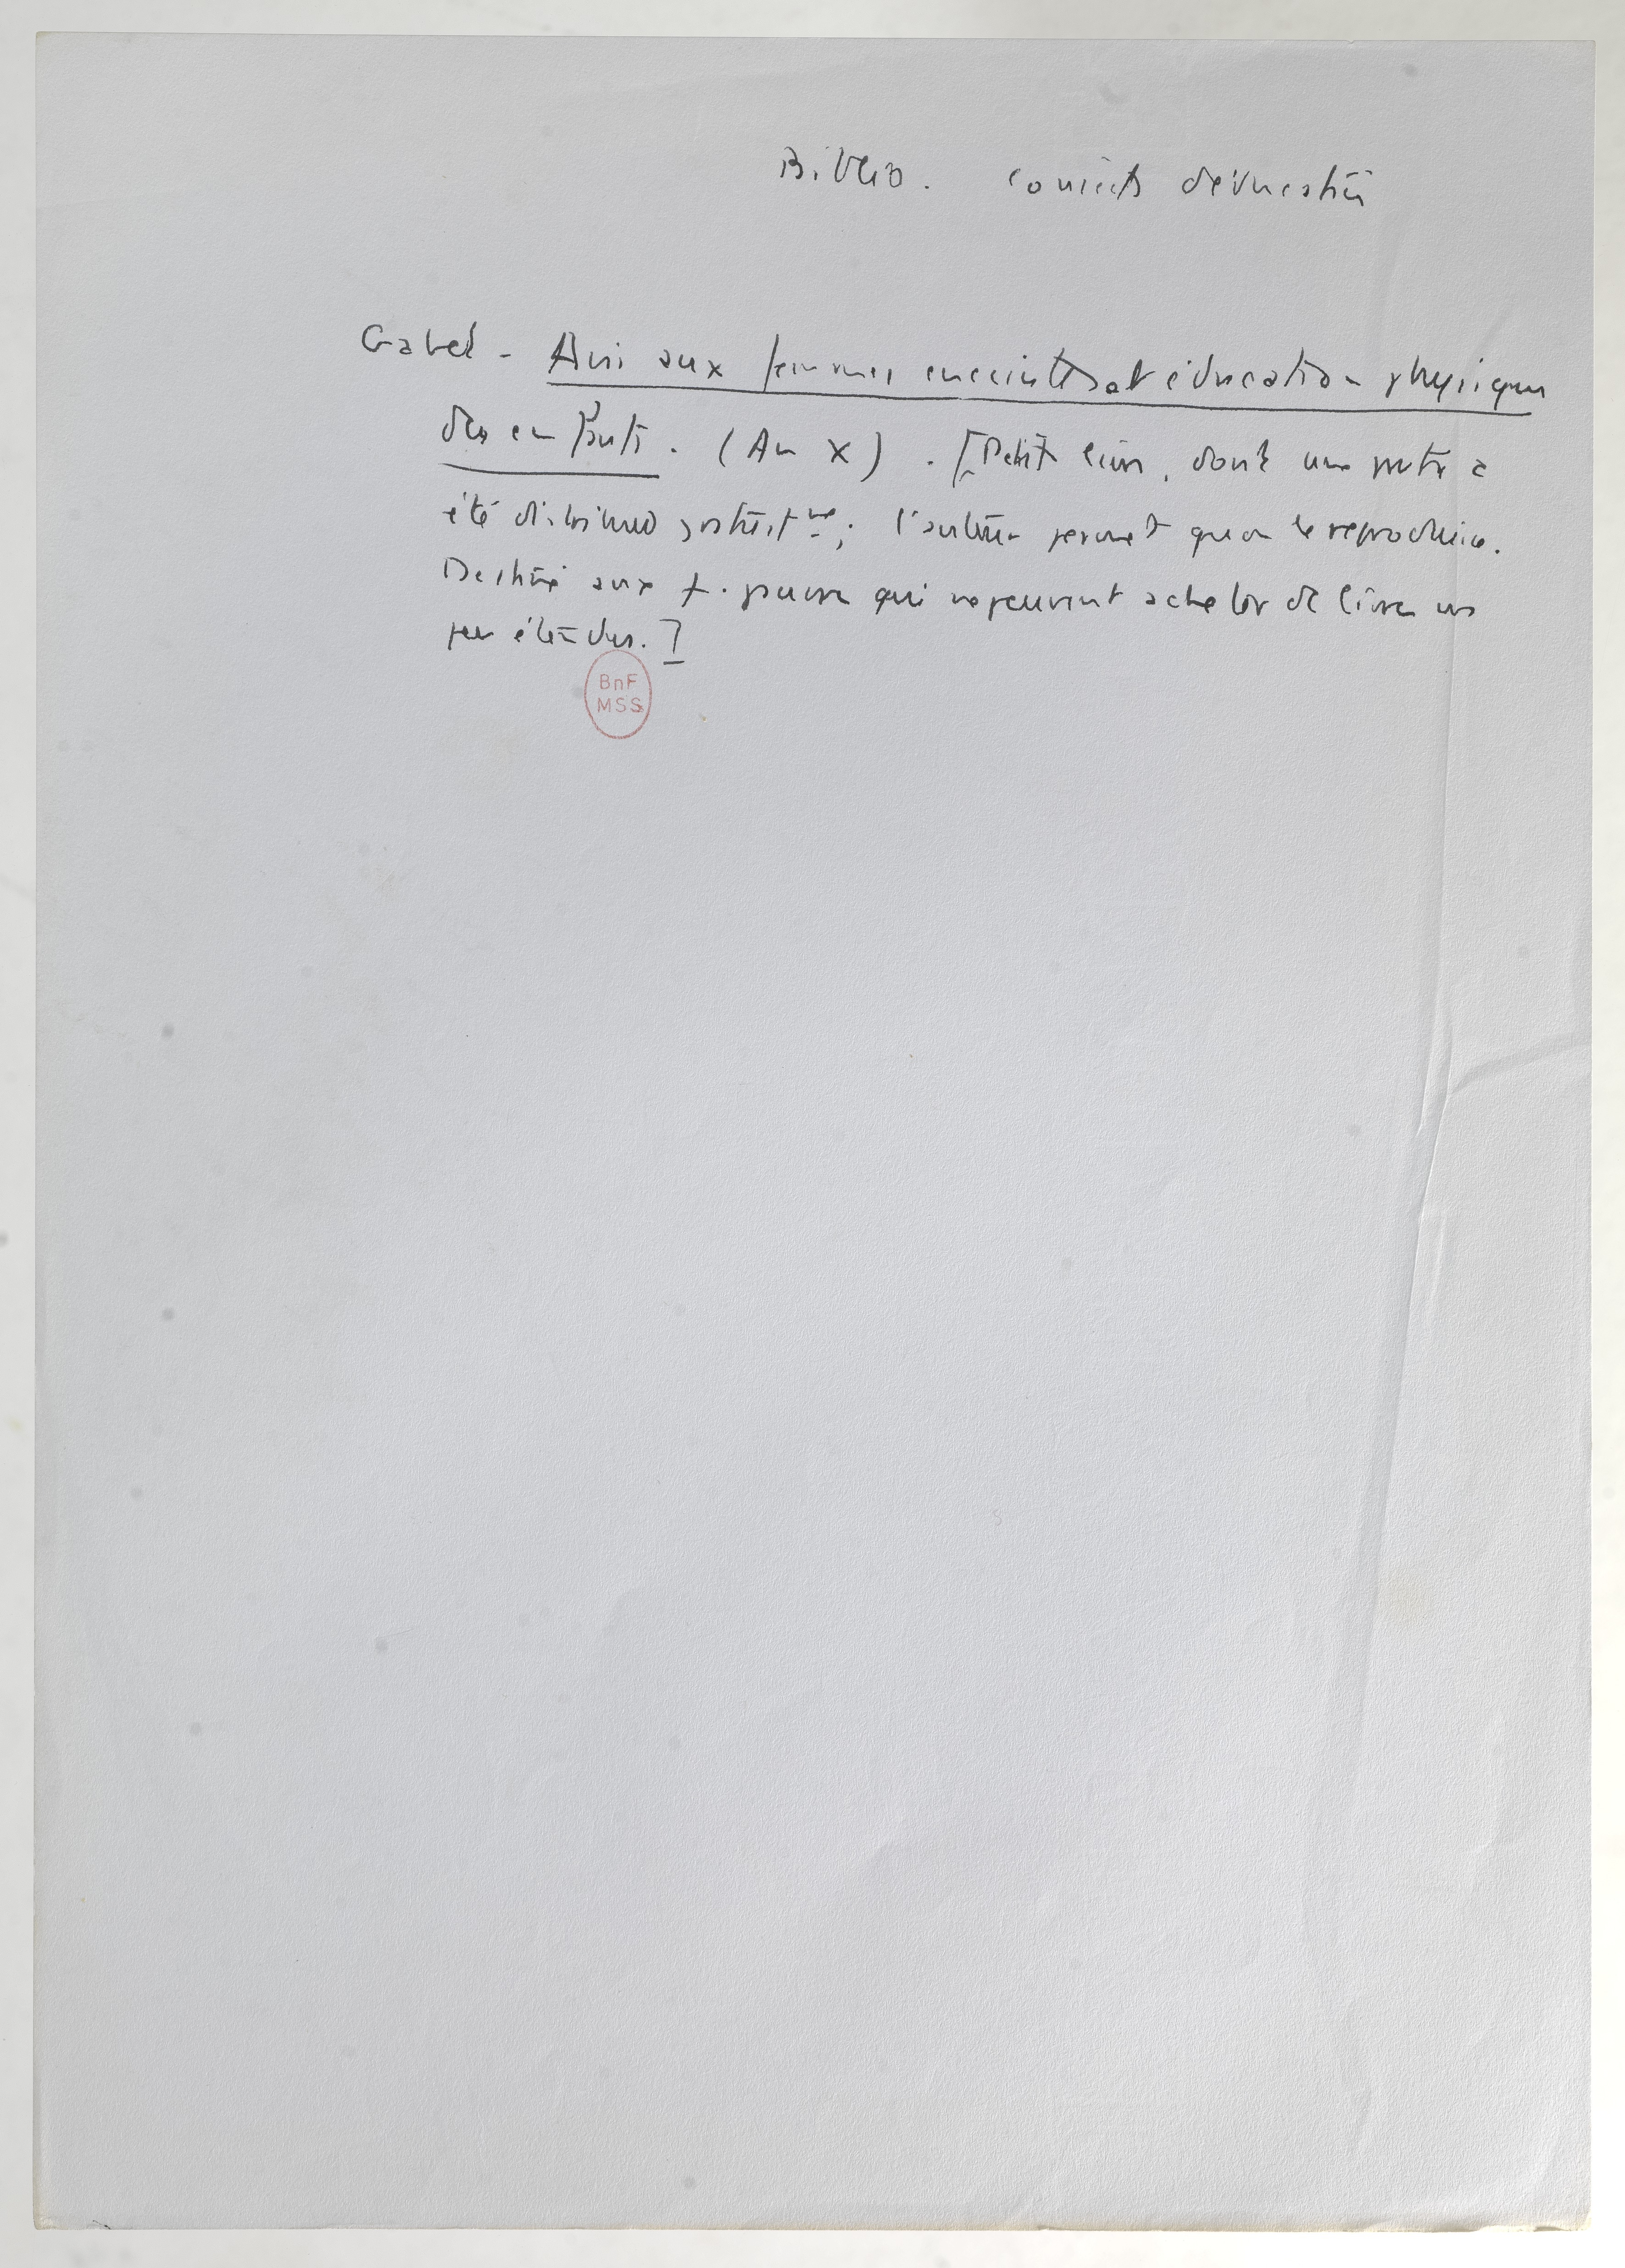 Biblio. conseils d'éducation
Gabel - Avis aux femmes enceintes et éducation physique
des enfants. (An X). [Petit livre, dont une partie a
été distribué gratuitemt; l'auteur permet qu'on le reproduise.
Destiné aux f. pauvres qui ne peuvent acheter de livres un
peu étendus.]
BnF
MSS